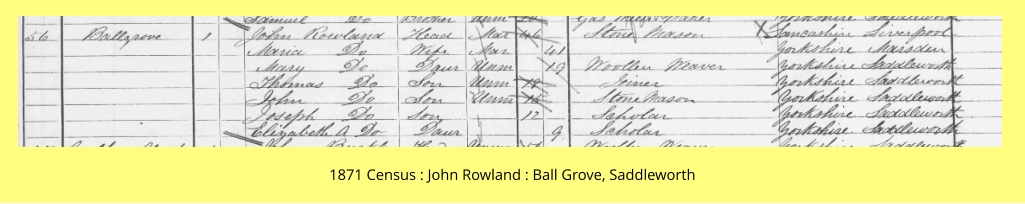 Samuel Do Brother Unm
56 Ballgrove 1 John Rowland Head Mar 46 Stone Mason Lancashire Liverpool
Maria Do Wife Mar 41 Yorkshire Marsden
Mary Do Daur Unm 19 Woollen Weaver Yorkshire Saddleworth
Thomas Do Son Unm 18 Joiner Yorkshire Saddleworth
John Do Son Unm Stone Mason Yorkshire Saddleworth
Joseph Do Son 12 Scholar Yorkshire Saddleworth
Elizabeth A Do Daur 9 Scholar Yorkshire Saddleworth
1871 Census : John Rowland : Ball Grove, Saddleworth